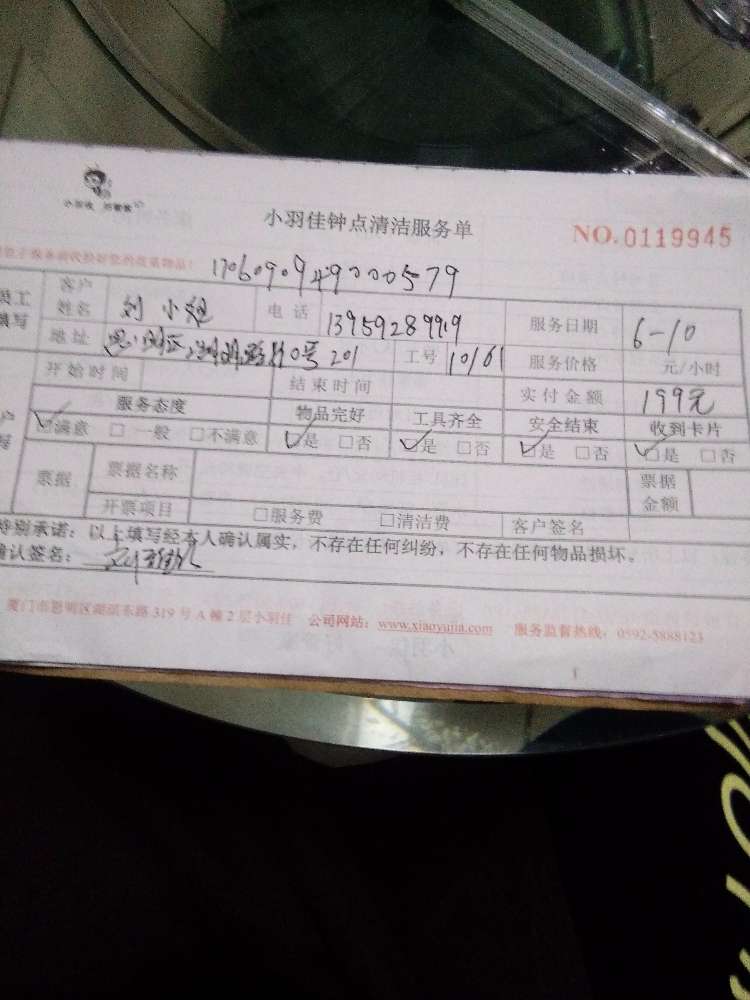 小羽佳 好管家
小羽佳钟点清洁服务单
NO.0119945
17060909490000579
客户姓名 刘小姐 电话 13959289919 服务日期 6-10
地址 201 工号 10161 服务价格 元/小时
开始时间 结束时间 实付金额 199元
服务态度 物品完好 工具齐全 安全结束 收到卡片
☑满意 □一般 □不满意 ☑是 □否 ☑是 □否 ☑是 □否 ☑是 □否
票据 票据名称 票据金额
开票项目 □服务费 □清洁费 客户签名
特别承诺:以上填写经本人确认属实,不存在任何纠纷,不存在任何物品损坏。
确认签名:
厦门市思明区湖滨东路319号A幢2层小羽佳 公司网站:www.xiaoyujia.com 服务监督热线:0592-5888123